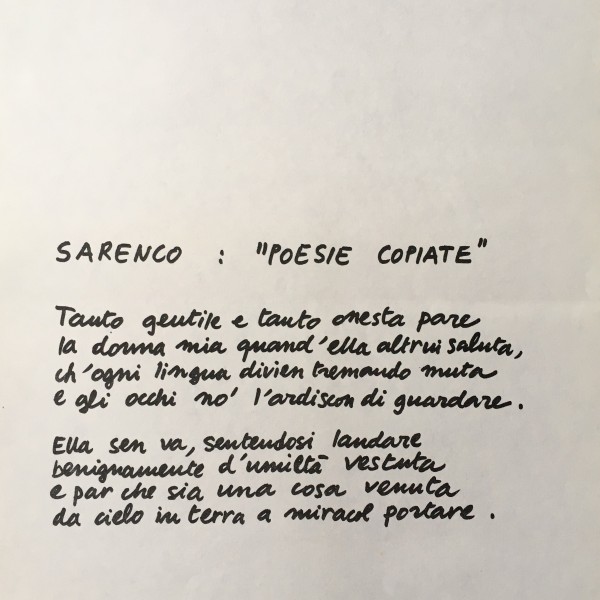 SARENCO : "POESIE COPIATE"
Tanto gentile e tanto onesta pare
la donna mia quand'ella altrui saluta,
ch'ogni lingua divien tremando muta
e gli occhi no' l'ardiscon di guardare.
Ella sen va, sentendosi laudare
benignamente d'umiltà vestuta
e par che sia una cosa venuta
da cielo in terra a miracol portare.